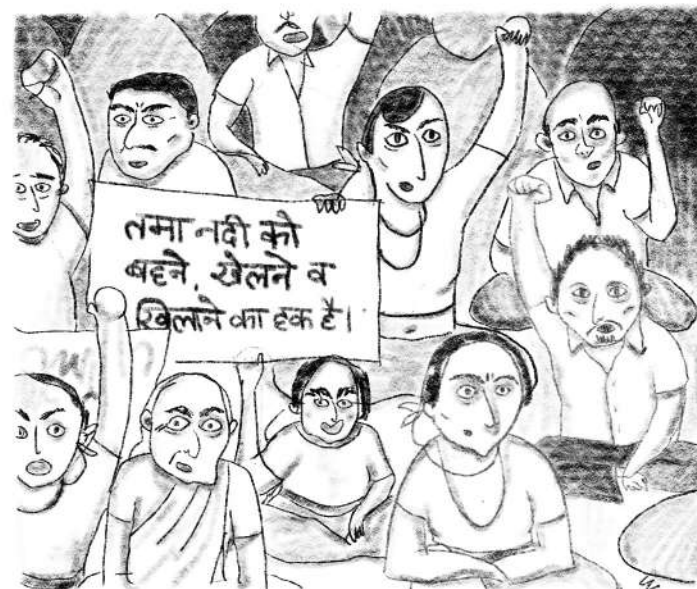 तमा नदी को
बहने, खेलने व
खिलाने का हक है।